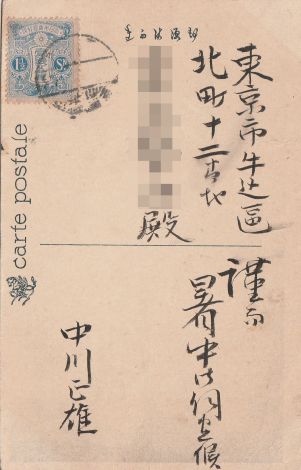 東京市牛込區
北町十二番地
殿
謹而
暑中御伺申上候
中川正雄
carte postale
1½ Sn.